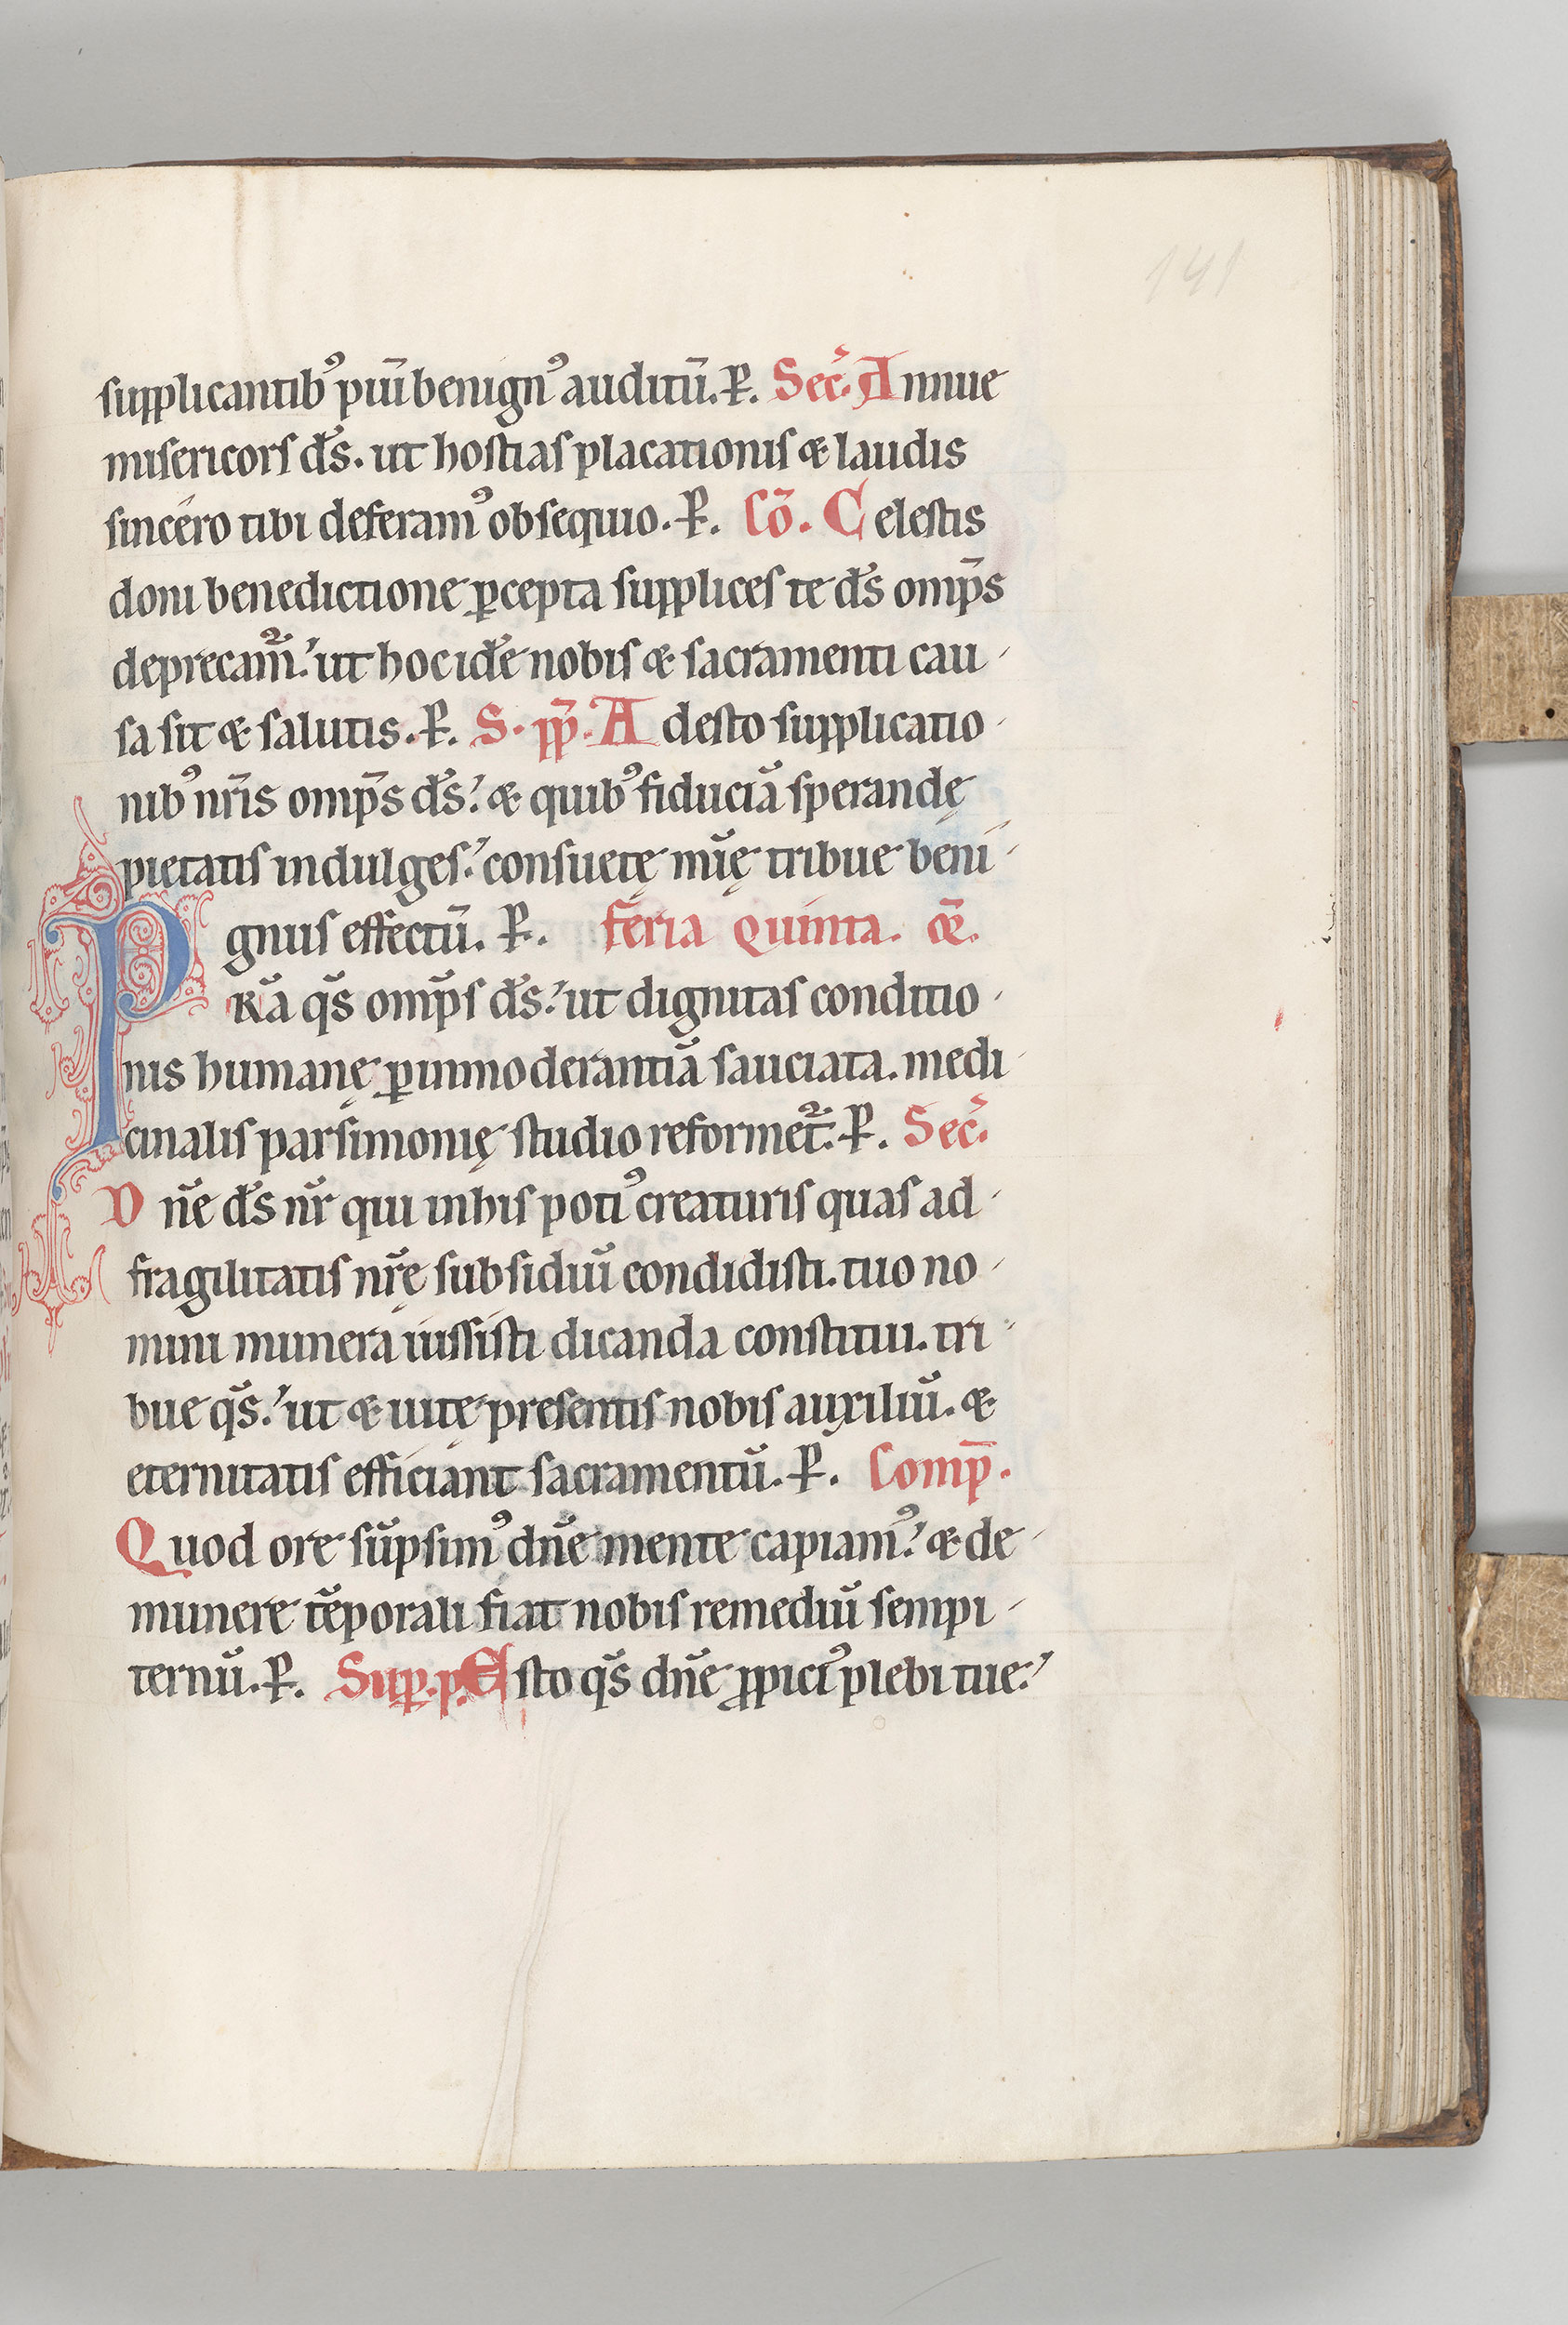 141
supplicantibꝰ piū benignꝰ auditū. P̱. Sec̄. Annue
misericors d̄s. ut hostias placationis & laudis
sincero tibi deferamꝰ obsequio. P̱. Cō. Celestis
doni benedictione ꝑcepta supplices te d̄s omp̄s
deprecam̄. ut hoc idē nobis & sacramenti cau-
sa sit & salutis. P̱. S. pp̄. Adesto supplicatio-
nibꝰ nr̄is omp̄s d̄s. & quibꝰ fiduciā sperandę
pietatis indulges. consuetę mīę tribue beni-
gnus effectū. P̱. feria quinta. or̄.
PRā qs̄ omp̄s d̄s. ut dignitas conditio-
nis humanę ꝑ inmoderantiā sauciata. medi-
cinalis parsimonię studio reformet̄. P̱. Sec̄.
Dn̄e d̄s nr̄ qui in his potiꝰ creaturis quas ad
fragilitatis nr̄ę subsidiū condidisti. tuo no-
mini munera iussisti dicanda constitui. tri-
bue qs̄. ut & uitę presentis nobis auxiliū. &
eternitatis efficiant sacramentū. P̱. Comp̄.
Quod ore sūpsimꝰ dn̄e mente capiamꝰ. & de
munere tēporali fiat nobis remediū sempi-
ternū. P̱. Suꝑ. p. Esto qs̄ dn̄e ꝓpiciꝰ plebi tue.